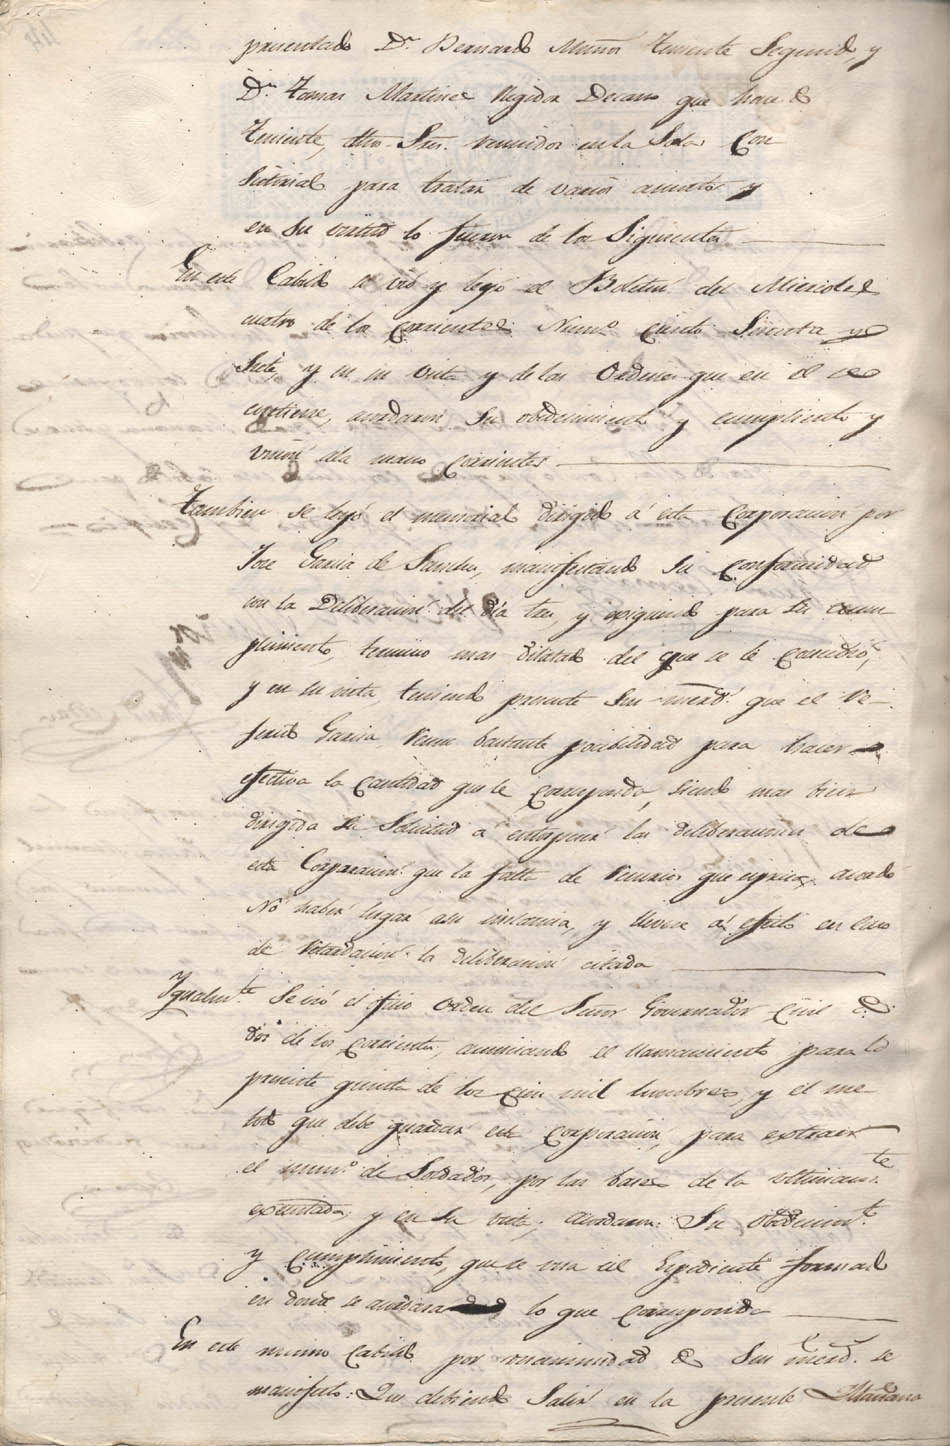 presentado Dn. Bernardo Muñoz Teniente Segundo, y
Dn. Tomas Martinez Regidor Decano que hace de
Teniente, dhos. Sres. reunidos en la Sala Con
sistorial para tratar de varios asuntos y
en su virtud lo fueron de los Siguientes
En este Cabildo se vió y leyó el Boletin del Miercoles
cuatro de los corrientes Numo. ciento Sesenta y
Siete, y en su vista y de las Ordenes que en él se
contiene, acordaron su obedecimiento y cumplimto y
unir a la mano corrientes
Tambien se leyó el memorial dirigido á esta Corporacion por
Jose Garcia de Sanchez, manifestando su conformidad
con la Deliberacion del dia tres y exigiendo para su cum
plimiento, termino mas dilatado del que se le concedió,
y en su vista teniendo presente Sus merds. que el Re-
ferido Garcia, reune bastante posibilidad para hacer
efectiva la cantidad que le corresponde, siendo mas bien
dirigida su Solicitud á entorpecer las deliberaciones de
esta Corporacion que la falta de recursos que espresa, acordó
No haber lugar a su instancia, y llevar á efecto en caso
de retardacion la deliberacion citada
Ygualmte. Se vió el oficio orden del Señor Governador Civil de
dos de los corrientes, comunicando el llamamiento para la
presente quinta de los cien mil hombres, y el me
todo que debe guardar esta corporacion, para extraer
el numo. de Soldados, por las bases de la ultimamte
ejecutada; y en su vista, acordaron Su obedecimto.
y cumplimiento, que se una al Espediente formado
en donde se acordará lo que corresponda
En este mismo Cabildo por unanimidad de Sus merds. se
manifestó: Que debiendo Salir en la presente Mañana